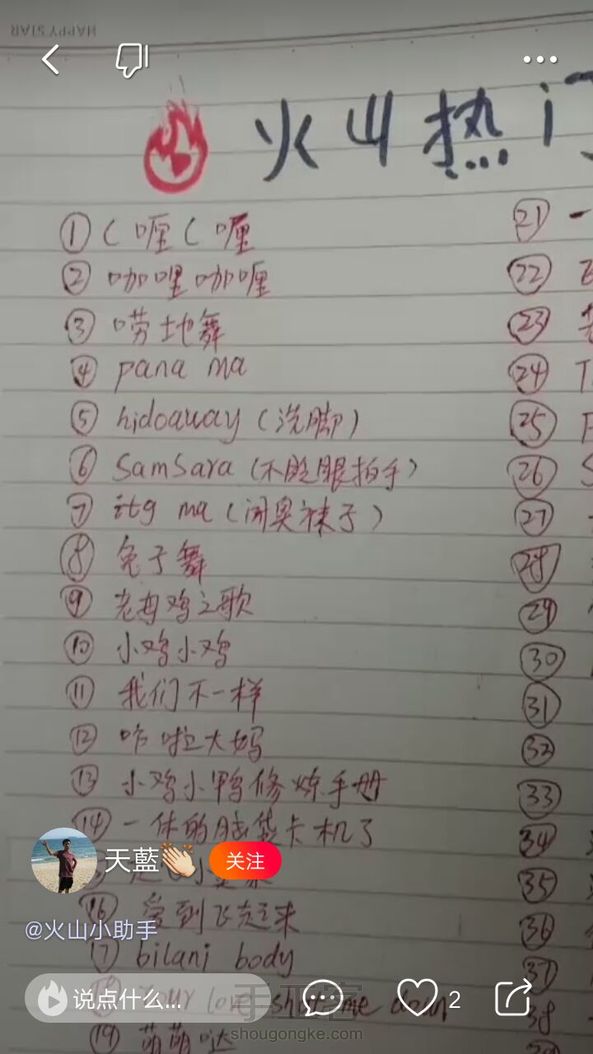 HAPPY STAR
火山热门
① C喱C喱
② 咖哩咖喱
③ 唠土地舞
④ pana ma
⑤ hidoaway (洗脚)
⑥ Samsara (不眨眼拍手)
⑦ itg ma (闻臭袜子)
⑧ 兔子舞
⑨ 老母鸡之歌
⑩ 小鸡小鸡
⑪ 我们不一样
⑫ 咋啦大妈
⑬ 小鸡小鸭修炼手册
⑭ 一休的脑袋卡机了
⑯ 爱到飞起来
⑰ bilani body
love shot me down
⑲ 萌萌哒
㉑ 一
㉒
㉓
㉔ T
㉕
㉖ S
㉗
㉘
㉙
㉚
㉛
㉜
㉝
㉞
㉟
㊱
㊲
38
天藍👏 关注
@火山小助手
说点什么...
2
shougongke.com